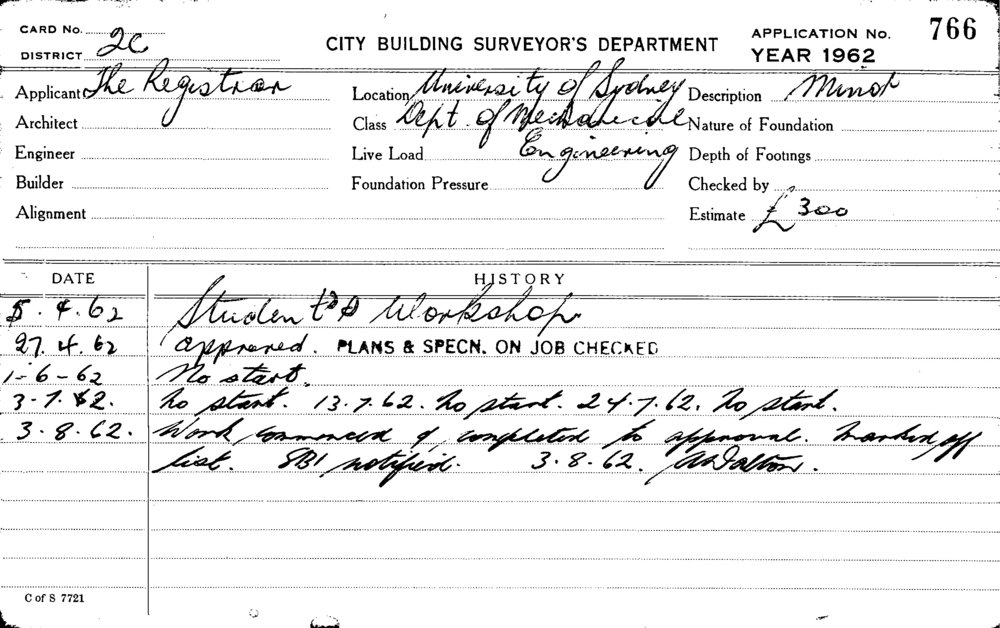 CARD No.
DISTRICT 2C
CITY BUILDING SURVEYOR'S DEPARTMENT
APPLICATION No. 766
YEAR 1962
Applicant The Registrar
Location University of Sydney
Description Minor
Architect
Class Dept. of Mechanical
Nature of Foundation
Engineer
Live Load Engineering
Depth of Footings
Builder
Foundation Pressure
Checked by
Alignment
Estimate £300
DATE HISTORY
5.4.62 Student's Workshop
27.4.62 approved. PLANS & SPECN. ON JOB CHECKED
1-6-62 No start.
3.7.62. No start. 13.7.62. No start. 24.7.62. No start.
3.8.62. Work commenced & completed to approval. Marked off
list. SBI notified. 3.8.62.
C of S 7721